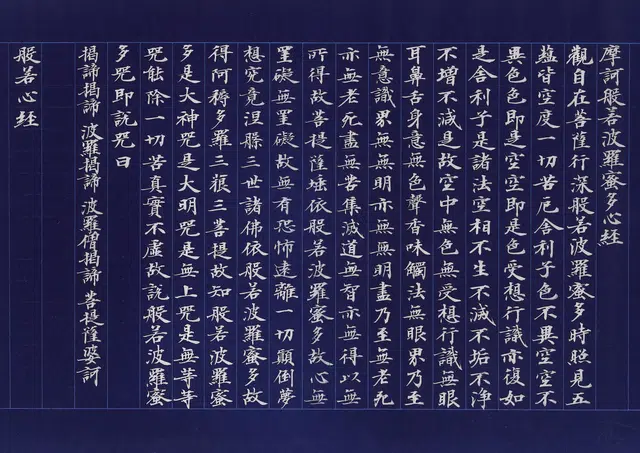 摩訶般若波羅蜜多心經
觀自在菩薩行深般若波羅蜜多時照見五
蘊皆空度一切苦厄舍利子色不異空空不
異色色即是空空即是色受想行識亦復如
是舍利子是諸法空相不生不滅不垢不淨
不增不減是故空中無色無受想行識無眼
耳鼻舌身意無色聲香味觸法無眼界乃至
無意識界無無明亦無無明盡乃至無老死
亦無老死盡無苦集滅道無智亦無得以無
所得故菩提薩埵依般若波羅蜜多故心無
罣礙無罣礙故無有恐怖遠離一切顛倒夢
想究竟涅槃三世諸佛依般若波羅蜜多故
得阿耨多羅三藐三菩提故知般若波羅蜜
多是大神咒是大明咒是無上咒是無等等
咒能除一切苦真實不虛故說般若波羅蜜
多咒即說咒曰
揭諦揭諦 波羅揭諦 波羅僧揭諦 菩提薩婆訶
般若心經